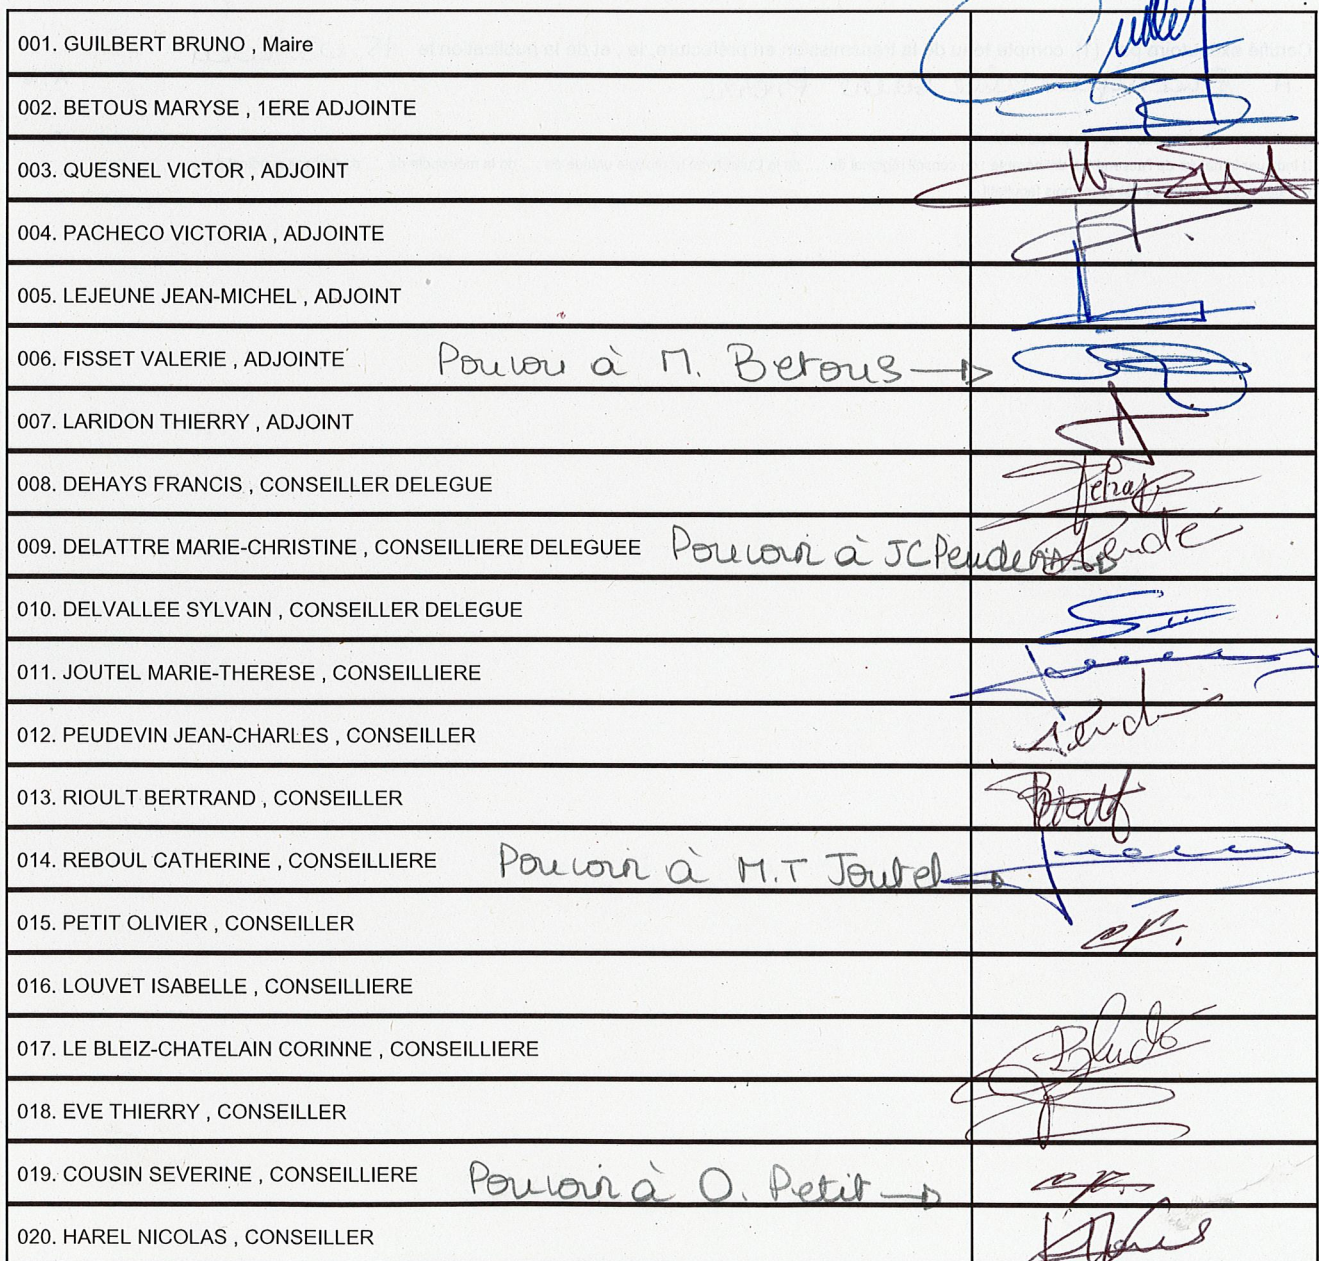 001. GUILBERT BRUNO , Maire
002. BETOUS MARYSE , 1ERE ADJOINTE
003. QUESNEL VICTOR , ADJOINT
004. PACHECO VICTORIA , ADJOINTE
005. LEJEUNE JEAN-MICHEL , ADJOINT
006. FISSET VALERIE , ADJOINTE Pouvoir à M. Betous
007. LARIDON THIERRY , ADJOINT
008. DEHAYS FRANCIS , CONSEILLER DELEGUE
009. DELATTRE MARIE-CHRISTINE , CONSEILLIERE DELEGUEE Pouvoir à JC Peudevin
010. DELVALLEE SYLVAIN , CONSEILLER DELEGUE
011. JOUTEL MARIE-THERESE , CONSEILLIERE
012. PEUDEVIN JEAN-CHARLES , CONSEILLER
013. RIOULT BERTRAND , CONSEILLER
014. REBOUL CATHERINE , CONSEILLIERE Pouvoir à M.T Joutel
015. PETIT OLIVIER , CONSEILLER
016. LOUVET ISABELLE , CONSEILLIERE
017. LE BLEIZ-CHATELAIN CORINNE , CONSEILLIERE
018. EVE THIERRY , CONSEILLER
019. COUSIN SEVERINE , CONSEILLIERE Pouvoir à O. Petit
020. HAREL NICOLAS , CONSEILLER